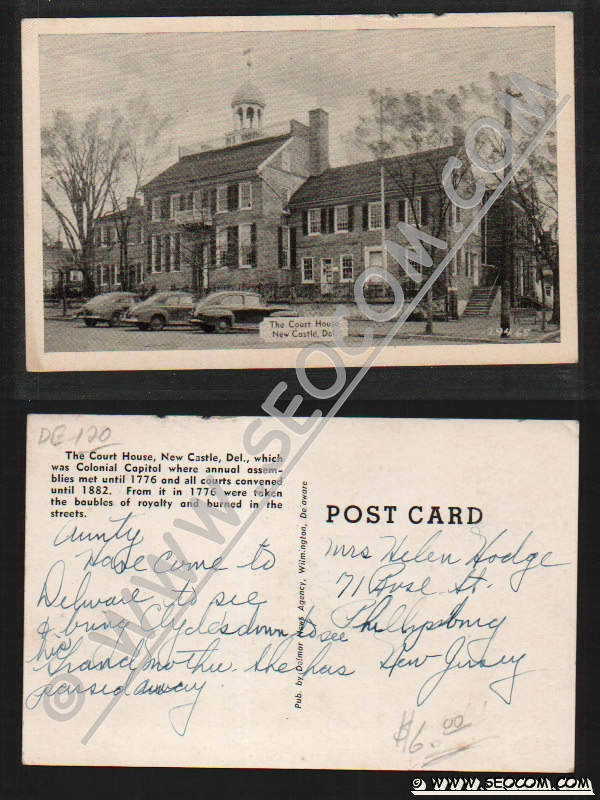 The Court House
New Castle, Del.
29467
© WWW.SEOCOM.COM
DE-120
The Court House, New Castle, Del., which
was Colonial Capitol where annual assem-
blies met until 1776 and all courts convened
until 1882. From it in 1776 were taken
the baubles of royalty and burned in the
streets.
Aunty
Have come to
Delware to see
& bring Clydes down to see
his
Grandmother She has
passed away.
Pub. by Delmar News Agency, Wilmington, Delaware
POST CARD
Mrs Helen Hodge
71 St.
Phillipsburg
New Jersey
$6.00
© WWW.SEOCOM.COM